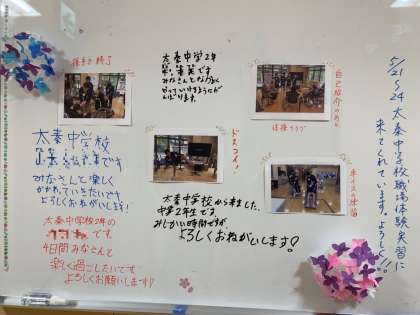 太秦中学2年
です
みなさんとなかよく
やっていけるようにが
んばります。
自己紹介の時
ドスコイ!
太秦中学校
です
みなさんと楽しく
かかわっていきたいです
よろしくおねがいします!
太秦中学校2年の
です。
4日間みなさんと
楽しく過ごしたいです
よろしくお願いします♡
太秦中学校から来ました、
中学2年生です。
みじかい時間ですが
よろしくおねがいします!
5/21〜24 太秦中学校職場体験実習に
来てくれています。よろしく!!!